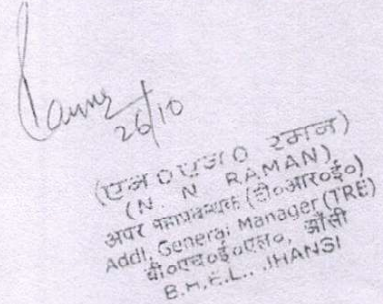 26/10
(एन०एन० रमन)
(N. N RAMAN)
अपर महाप्रबन्धक (टी०आर०ई०)
Addl. General Manager (TRE)
बी०एच०ई०एल०, झाँसी
B.H.E.L., JHANSI